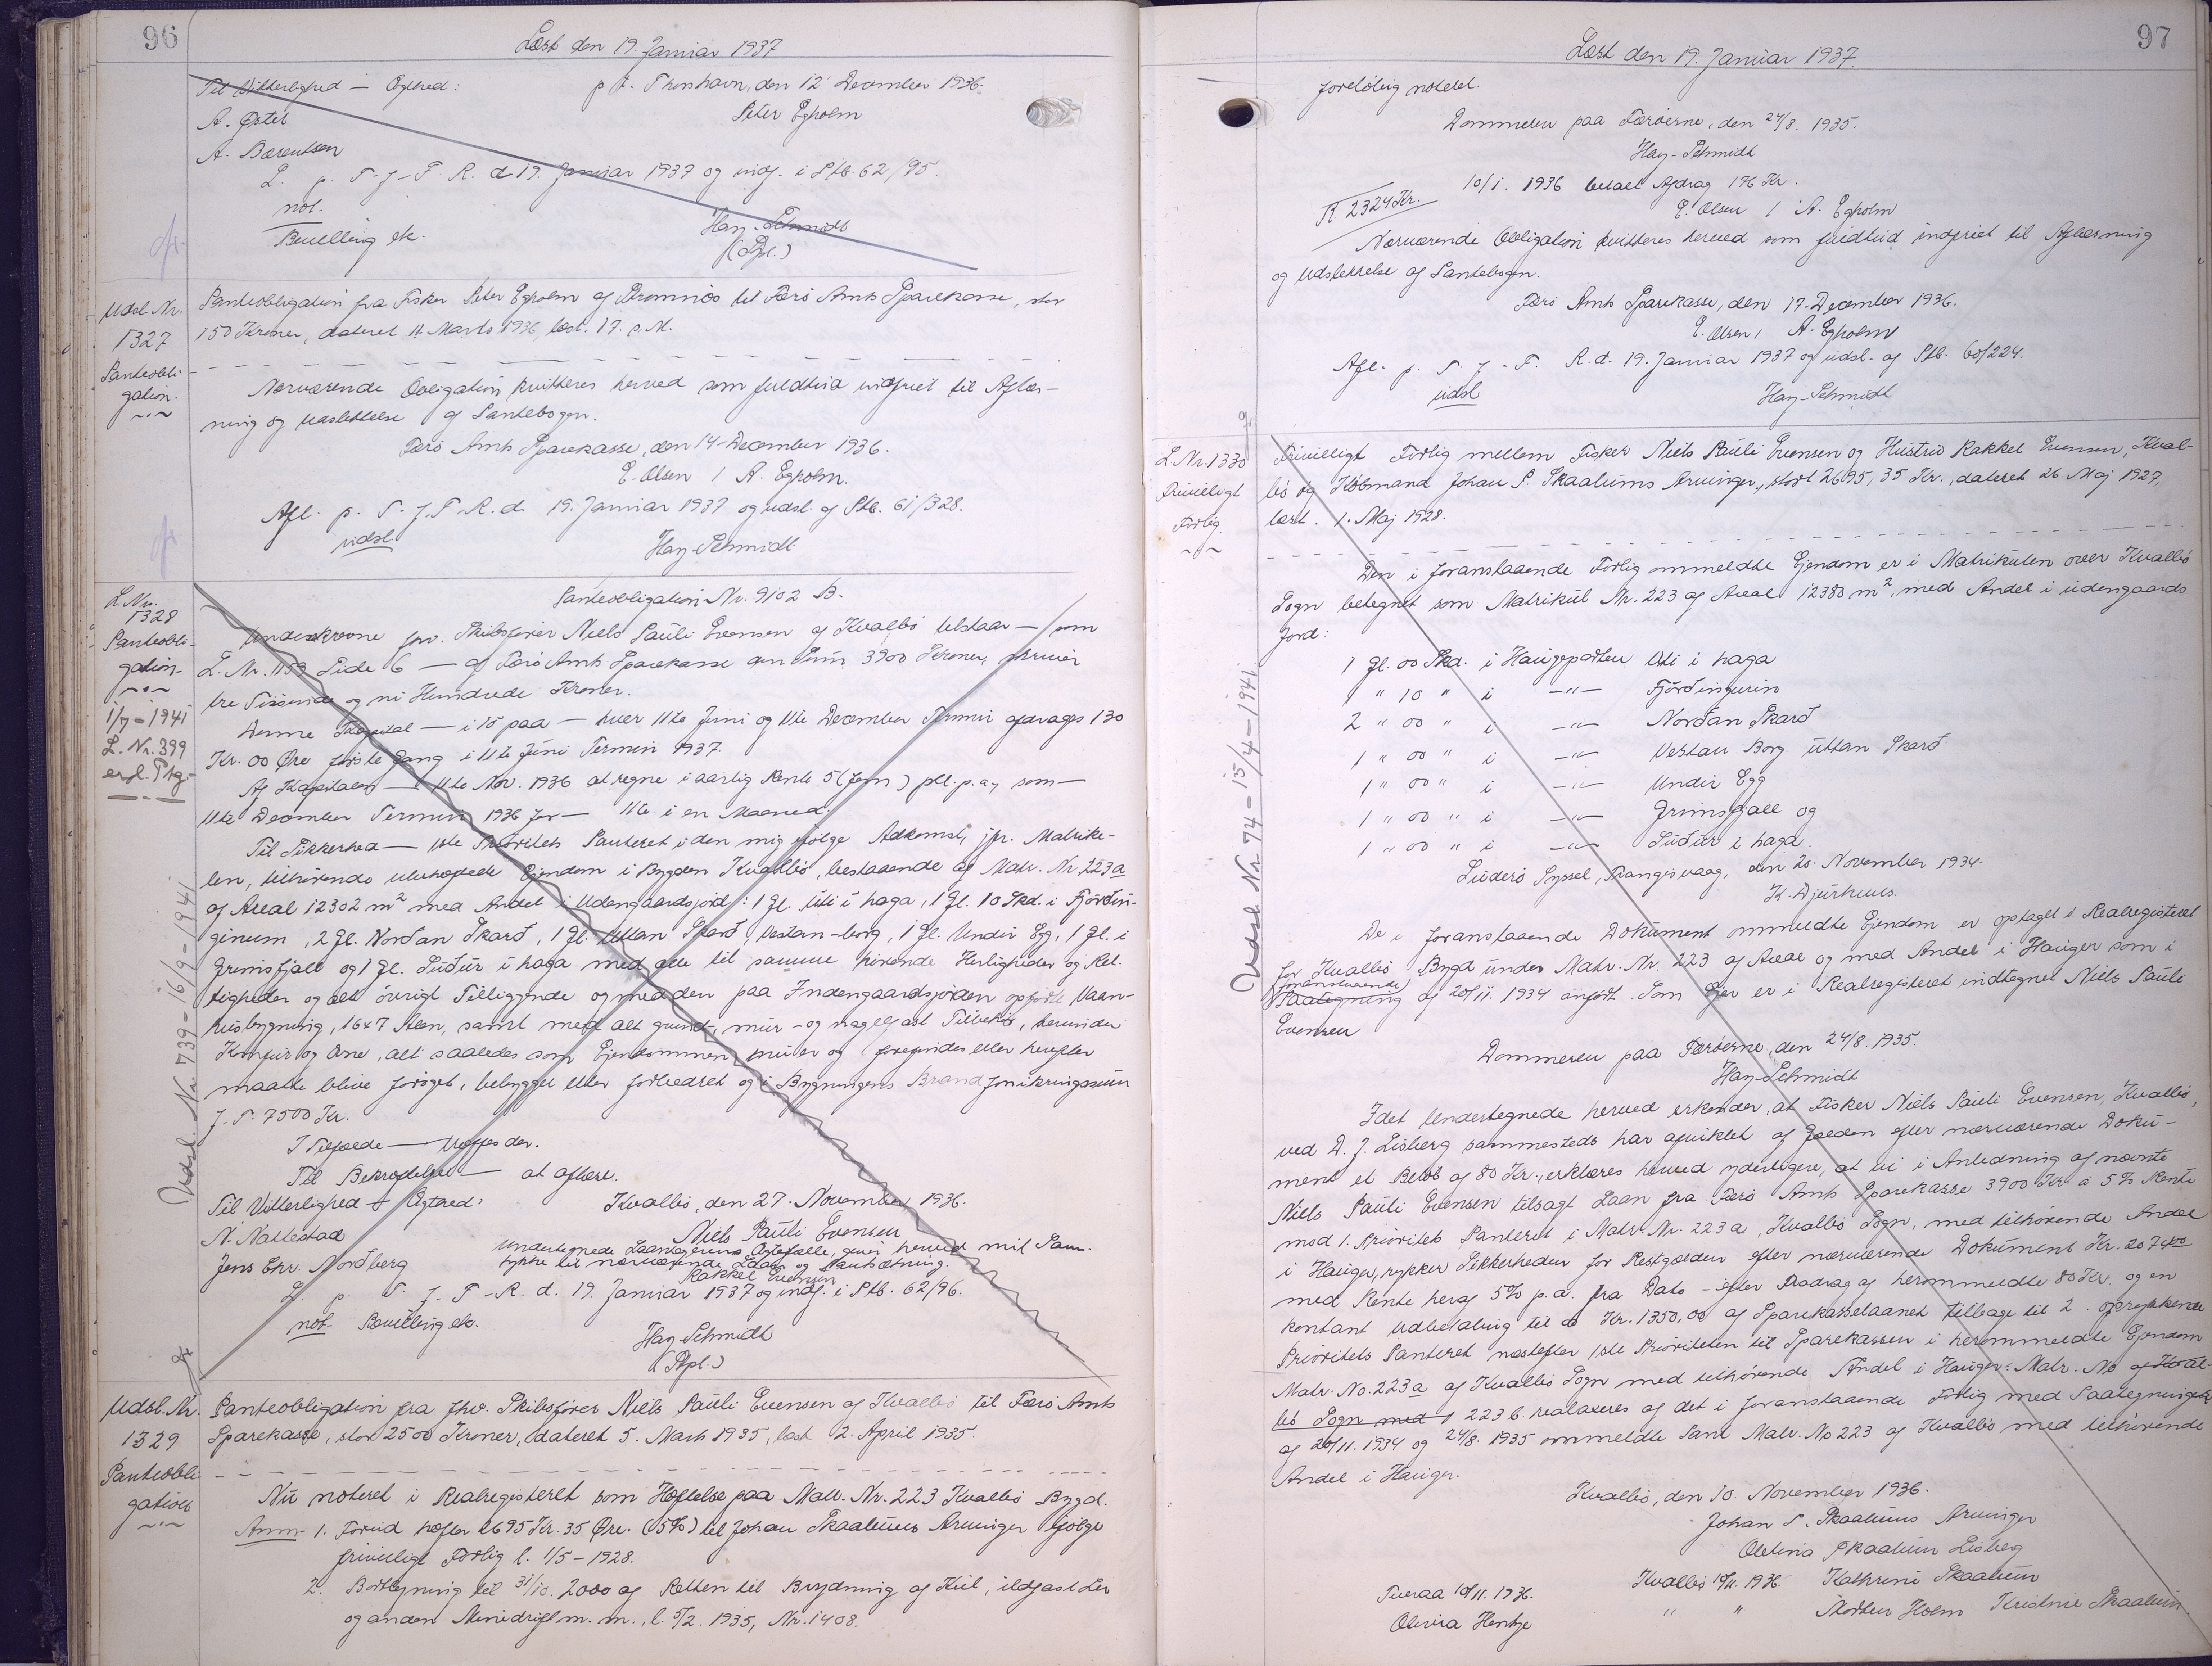 96
Læst den 19. Januar 1937
Til Vitterlighed — Ægthed:
p. t. Thorshavn, den 12' December 1936.
A. Øster
Peter Egholm
A. Bærentsen
L. p. S. f. F. R. d 19. Januar 1937 og indf. i Ptb. 62/95.
not.
Bevilling etc.
Hay-Schmidt
(Dpl.)
Udsl. Nr. 1327
Panteobli-
gation.
Panteobligation fra Fisker Peter Egholm af Promnæs til Færø Amts Sparekasse, stor
150 Kroner, dateret 11. Marts 1936, læst. 17. s. M.
Nærværende Obligation kvitteres herved som fuldtud indfriet til Aflæs-
ning og Udslettelse af Pantebogen.
Færø Amts Sparekasse, den 14. December 1936.
E. Olsen / A. Egholm.
Afl. p. S. f. F. R. d. 19. Januar 1937 og udsl. af Ptb. 61/328.
udsl.
Hay-Schmidt
L. Nr.
1328
Panteobli-
gation
1/7 - 1941
L. Nr. 399
erkl. Ptg.
Udsl. Nr. 739 - 16/9 - 1941
Panteobligation Nr. 9102 B.
Underskrevne fhv. Skibsfører Niels Pauli Evensen af Kvalbø tilstaar — som
L. Nr. 1159 Side 6 — af Færø Amts Sparekasse den Sum 3900 Kroner, skriver
tre Tusinde og ni Hundrede Kroner.
Denne Kapital — i 15 paa — hver 11te Juni og 11te December Termin afdrages 130
Kr. 00 Øre første Gang i 11te Juni Termin 1937.
Af Kapitalen — 11te Nov. 1936 at regne i aarlig Rente 5 (fem) pCt. p. a., som —
11te December Termin 1936 for — 11te i en Maaned.
Til Sikkerhed — 1ste Prioritets Panteret i den mig ifølge Adkomst, jfr. Matrike-
len, tilhørende ubehæftede Ejendom i Bygden Kvalbø, bestaaende af Matr. Nr. 223a
af Areal 12302 m² med Andel i Udengaardsjord: 1 Gl. Uti i haga, 1 Gl. 10 Skd. i Fjórðin-
ginum, 2 Gl. Norðan Skarð, 1 Gl. Uttan Skarð, Vestan-borg, 1 Gl. Undir Egg, 1 Gl. i
Grimsfjall og 1 Gl. Suður i haga med alle til samme hørende Herligheder og Ret-
tigheder og alt øvrigt Tilliggende og med den paa Indengaardsjorden opførte Vaan-
husbygning, 1647 Aleen, samt med alt grund-, mur- og nagelfast Tilbehør, herunder
Komfur og Ovne, alt saaledes som Ejendommen nu er og forefindes eller herefter
maatte blive forøget, bebygget eller forbedret og i Bygningens Brandforsikringssum
f. T. 7500 Kr.
I Tilfælde — Vægges der.
Til Bekræftelse — at aflæse.
Til Vitterlighed + Ægthed:
Kvalbø, den 27. November 1936.
N. Nattestad
Niels Pauli Evensen
Jens Chr. Norðberg
Undertegnede Laantagerens Ægtefælle, giver herved mit Sam-
tykke til nærværende Laan og Pantsætning.
Rakkel Evensen
L. p. S. f. F. R. d. 19. Januar 1937 og indf. i Ptb. 62/96.
not. Bevilling etc.
Hay-Schmidt
(Dpl.)
Udsl. Nr.
1329
Panteobli-
gation
Panteobligation fra fhv. Skibsfører Niels Pauli Evensen af Kvalbø til Færø Amts
Sparekasse, stor 2500 Kroner, dateret 5. Marts 1935, læst 2. April 1935.
Nu noteret i Realregisteret som Hæftelse paa Matr. Nr. 223 Kvalbø Bygd.
Anm. 1. Forud hæfter 2695 Kr. 35 Øre. (5%) til Johan Skaalums Arvinger ifølge
frivilligt Forlig l. 1/5 - 1928.
2. Bortbygning til 31/10. 2000 af Retten til Brydning af Kul, ildfast Ler
og anden Minedrift m. m., l. 5/2. 1935, Nr. 1408.
97
Læst den 19. Januar 1937.
foreløbig noteret.
Dommeren paa Færøerne, den 24/8. 1935.
Hay-Schmidt
10/1. 1936 betalt Afdrag 176 Kr.
R. 2324 Kr.
E. Olsen / A. Egholm
Nærværende Obligation kvitteres herved som fuldtud indfriet til Aflæsning
og Udslettelse af Pantebogen.
Færø Amts Sparekasse, den 17. December 1936.
E. Olsen / A. Egholm
Afl. p. S. f. F. R. d. 19. Januar 1937 og udsl. af Ptb. 60/224.
udsl
Hay-Schmidt
L. Nr. 1330
Frivilligt
Forlig.
Udsl. Nr. 74 - 15/4 - 1941
Frivilligt Forlig mellem Fisker Niels Pauli Evensen og Hustru Rakkel Evensen, Kval-
bø og Købmand Johan P. Skaalums Arvinger, stort 2695,35 Kr., dateret 26. Maj 1927,
læst. 1. Maj 1928.
Den i foranstaaende Forlig ommeldte Ejendom er i Matrikulen over Kvalbø
Sogn betegnet som Matrikul Nr. 223 af Areal 12380 m², med Andel i udengaards
Jord:
1 Gl. 00 Skd. i Haugepørten Uti i haga
" 10 " i —"— Fjórðingurin
2 " 00 " i —"— Norðan Skarð
1 " 00 " i —"— Vestan Borg uttan Skarð
1 " 00 " i —"— Undir Egg
1 " 00 " i —"— Grimsfjall og
1 " 00 " i —"— Suður i haga.
Suderø Syssel, Trangisvaag, den 20. November 1934.
K. Djurhuus.
De i foranstaaende Dokument ommeldte Ejendom er optaget i Realregisteret
for Kvalbø Bygd under Matr. Nr. 223 af Areal og med Andel i Hauger som i
foranstaaende
Paategning af 20/11. 1934 anført. Som Ejer er i Realregisteret indtegnet Niels Pauli
Evensen
Dommeren paa Færøerne, den 24/8. 1935.
Hay-Schmidt
Idet Undertegnede herved erkender, at Fisker Niels Pauli Evensen, Kvalbø,
ved D. J. Lisberg sammesteds har afviklet af Gælden efter nærværende Doku-
ment et Beløb af 80 Kr., erklæres herved yderligere, at vi i Anledning af nævnte
Niels Pauli Evensen tilsagt Laan fra Færø Amts Sparekasse 3900 Kr. à 5% Rente
mod 1. Prioritets Panteret i Matr. Nr. 223 a, Kvalbø Sogn, med tilhørende Andel
i Hauger, rykker Sikkerheden for Restgælden efter nærværende Dokument Kr. 2074.00
med Rente heraf 5% p. a. fra Dato - efter Fradrag af herommeldte 80 Kr. og en
kontant Udbetaling til os Kr. 1350,00 af Sparekasselaanet tilbage til 2. oprykkende
Prioritets Panteret næstefter 1ste Prioriteten til Sparekassen i herommeldte Ejendom
Matr. No. 223a af Kvalbø Sogn med tilhørende Andel i Hauger. Matr. No af Kval-
bø Sogn med 223 b. realaxeres af det i foranstaaende Forlig med Paategninger
af 20/11. 1934 og 24/8. 1935 ommeldte Pant Matr. No 223 af Kvalbø med tilhørende
Andel i Hauger.
Kvalbø, den 10. November 1936.
Johan P. Skaalums Arvinger
Olevina Skaalum Lisberg
Tveraa 10/11. 1936.
Kvalbø 10/11. 1936. Kathrine Skaalum
Olivia Hentze
" " Morten Holm Kristine Skaalum.